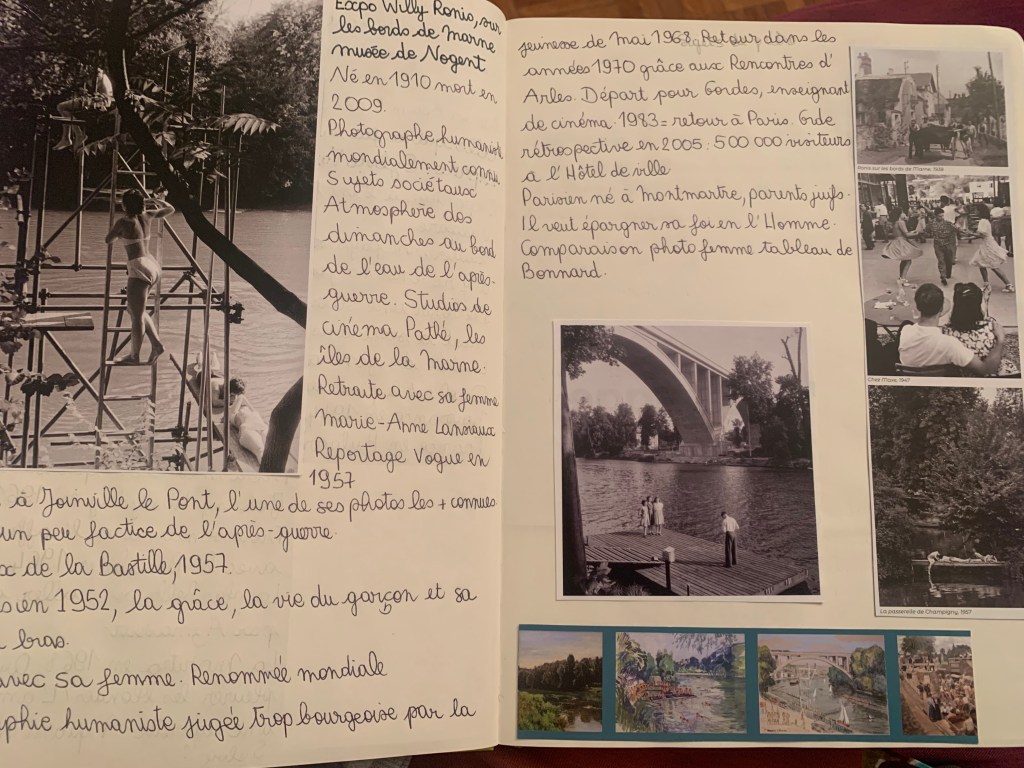 Expo Willy Ronis, sur
les bords de Marne
musée de Nogent
Né en 1910 mort en
2009.
Photographe humaniste
mondialement connu
Sujets sociétaux
Atmosphère des
dimanches au bord
de l'eau de l'après-
guerre. Studios de
cinéma Pathé, les
îles de la Marne.
Retraite avec sa femme
Marie-Anne Lansiaux
Reportage Vogue en
1957
à Joinville le Pont, l'une de ses photos les + connues.
un peu factice de l'après-guerre.
de la Bastille, 1957.
en 1952, la grâce, la vie du garçon et sa
bras.
avec sa femme. Renommée mondiale
humaniste jugée trop bourgeoise par la
jeunesse de Mai 1968. Retour dans les
années 1970 grâce aux Rencontres d'
Arles. Départ pour Gordes, enseignant
de cinéma. 1983 = retour à Paris. Gde
rétrospective en 2005 : 500 000 visiteurs
à l'Hôtel de ville.
Parisien né à Montmartre, parents juifs.
Il veut épargner sa foi en l'Homme.
Comparaison photo femme tableau de
Bonnard.
sur les bords de Marne, 1938
Chez Maxe, 1947
La passerelle de Champigny, 1957